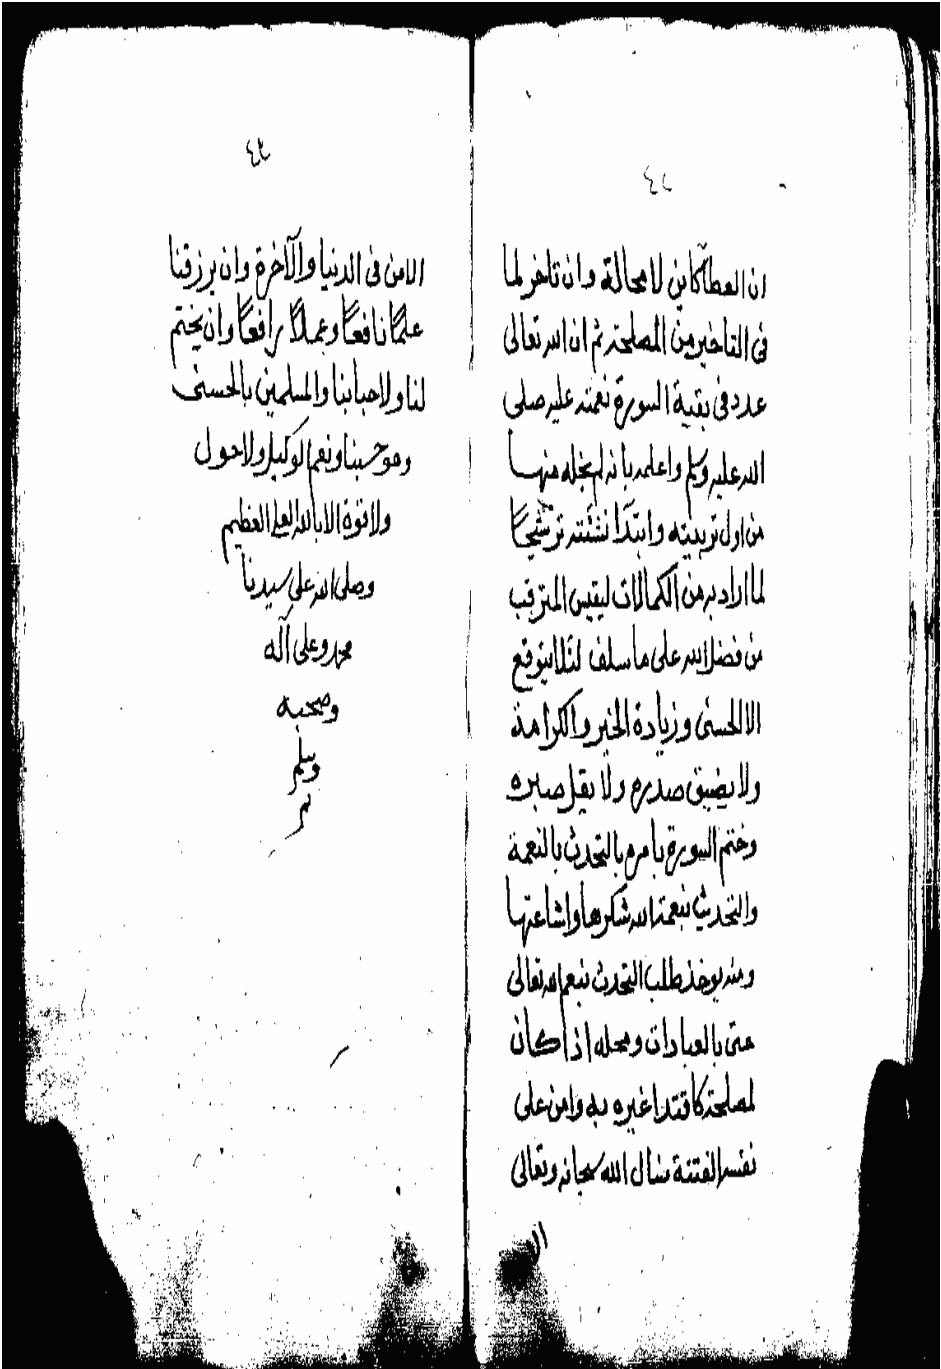 ان العطآ كاين لا محالة وان تاخر لما
فى التاخير من المصلحة ثم ان الله تعالى
عدد فى بقية السورة نعمته عليه صلى
الله عليه وسلم واعلمه بانه لم يخله منها
من اول تربيته وابتدآ نشئته ترشيحًا
لما اراد به من الكمالات ليقيس المترقب
من فضل الله على ما سلف لئلا يتوقع
الا الحسنى وزيادة الخير والكرامة
ولا يضيق صدره ولا يقل صبره
وختم السورة بامره بالتحدث بالنعمة
والتحديث بنعمة الله شكرها واشاعتها
ومنه يوخذ طلب التحدث بنعم الله تعالى
حتى بالعبادات ومحله اذا كان
لمصلحة كاقتدا غيره به وامن على
نفسه الفتنة نسال الله سبحانه وتعالى
الا
٤٢
الامن فى الدنيا والآخرة وان يرزقنا
علمًا نافعًا وعملًا رافعًا وان يختم
لنا ولاحبابنا والمسلمين بالحسنى
وهو حسبنا ونعم الوكيل ولا حول
ولا قوة الا بالله العلى العظيم
وصلى الله على سيدنا
محمد وعلى آله
وصحبه
وسلم
تم